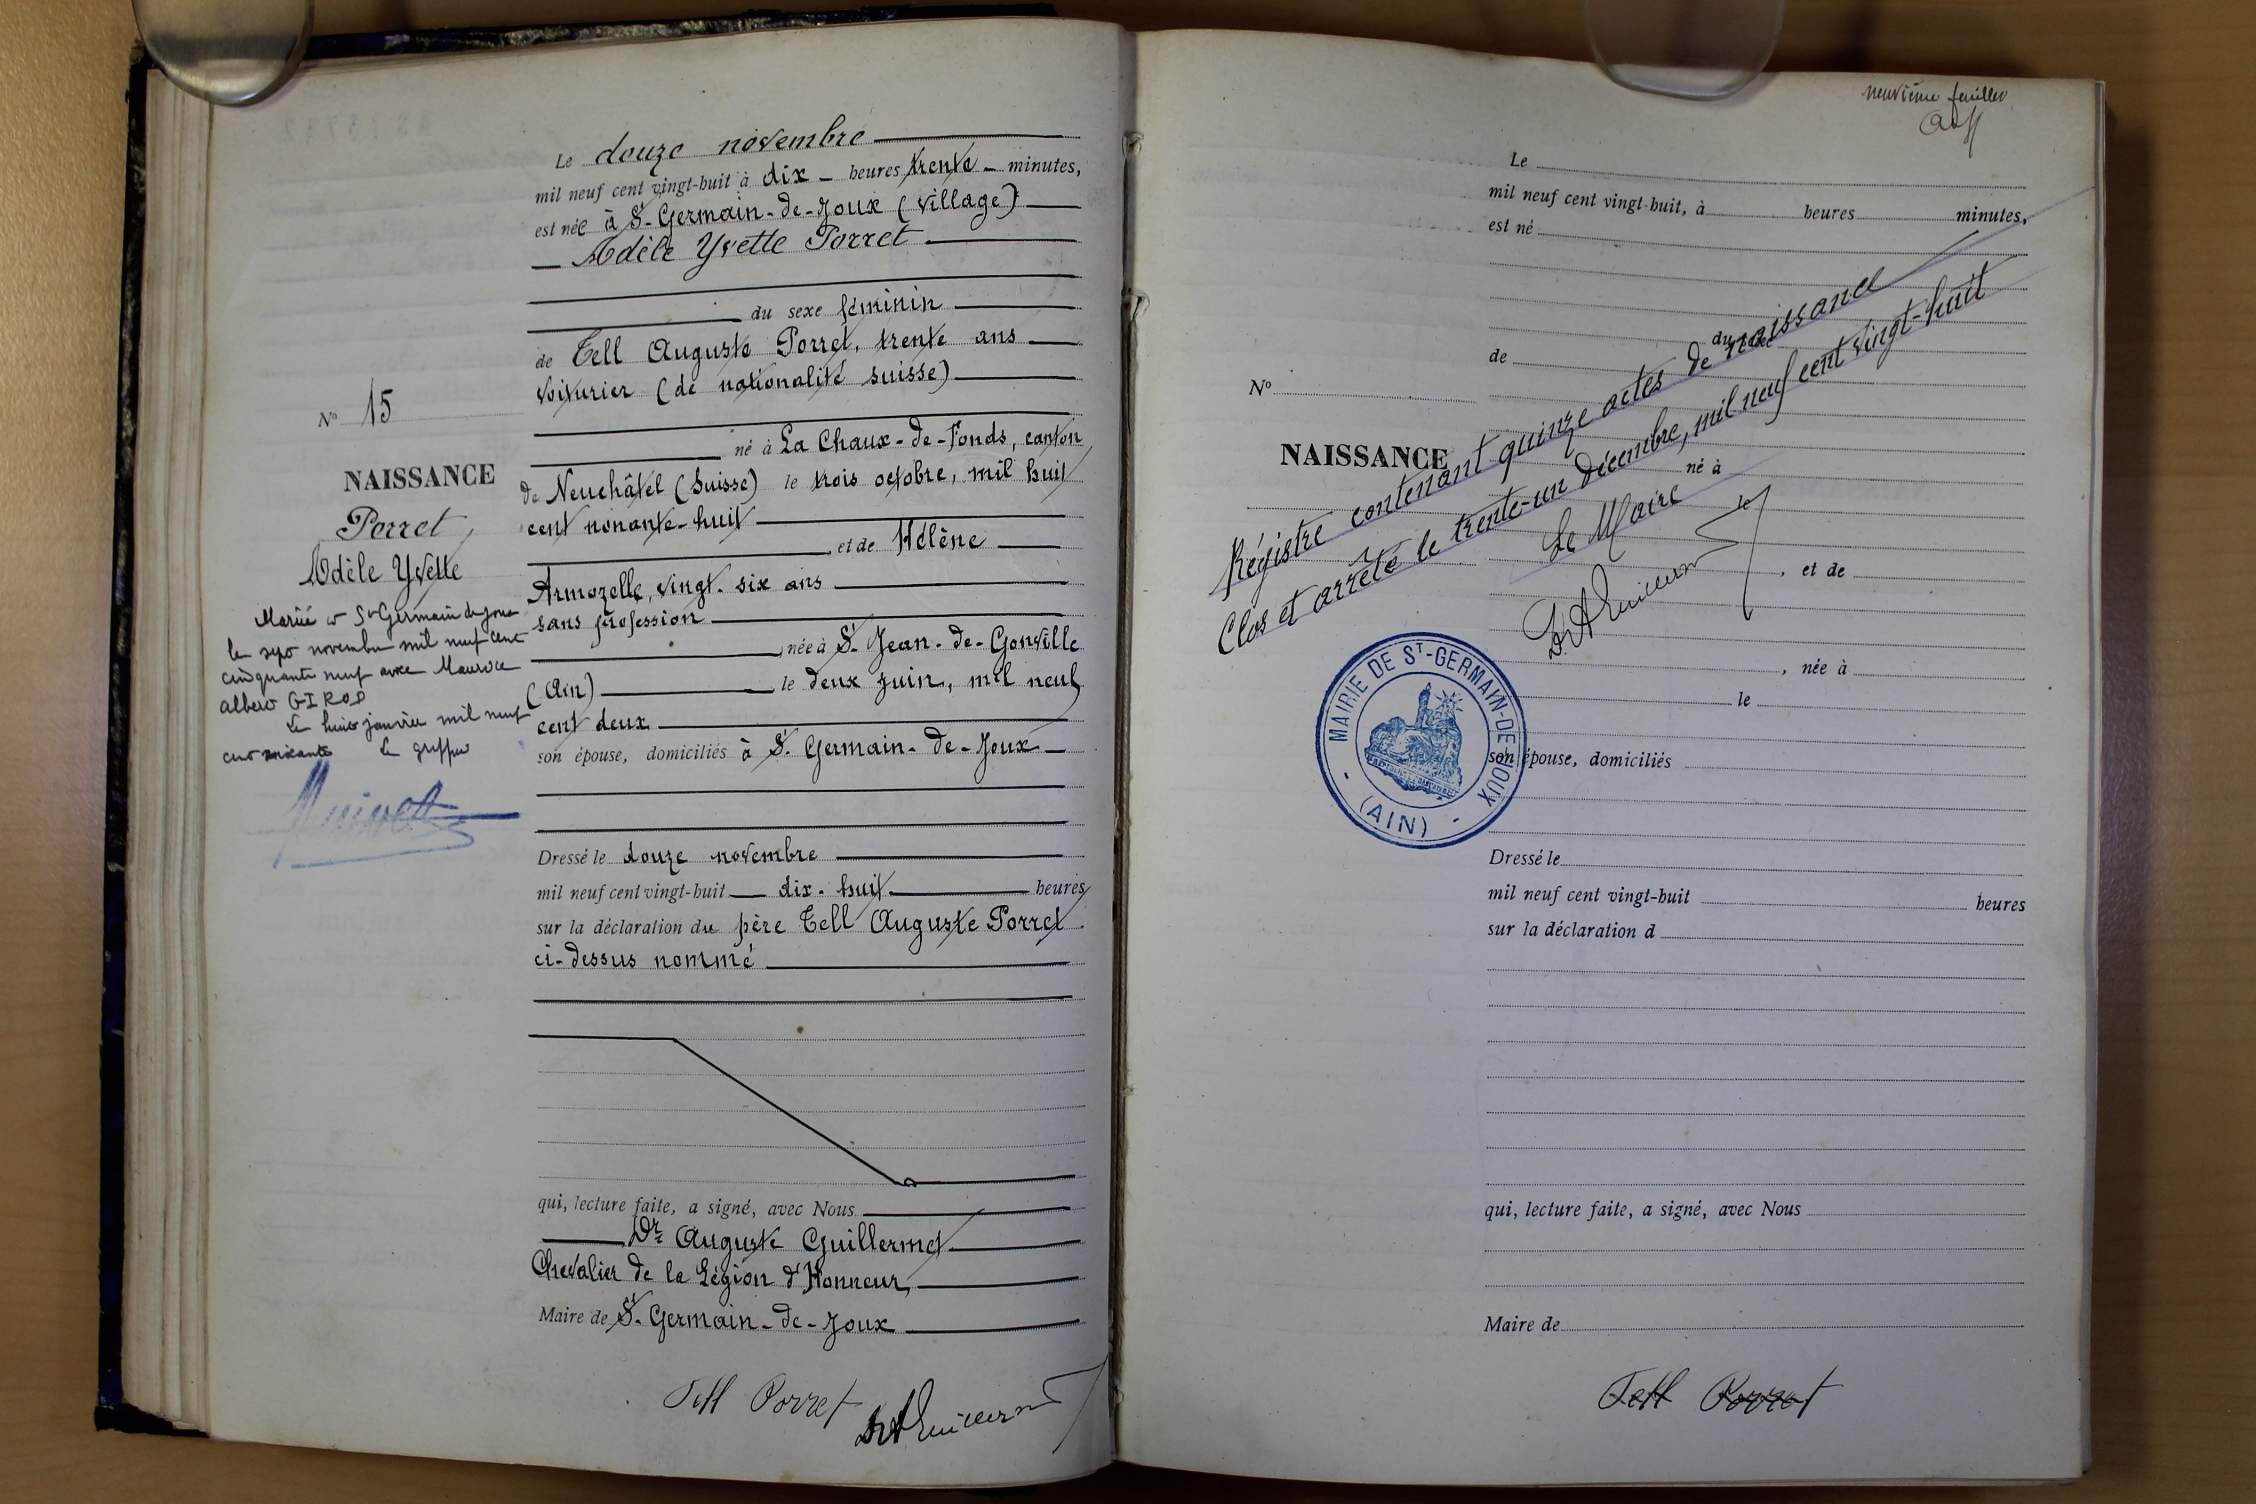 Le douze novembre
mil neuf cent vingt-huit à dix heures trente minutes,
est née à St-Germain-de-Joux (village)
Adèle Yvette Porret
du sexe féminin
de Tell Auguste Porret, trente ans
voiturier (de nationalité suisse)
né à La Chaux-de-Fonds, canton
de Neuchâtel (Suisse) le trois octobre, mil huit
cent nonante-huit
et de Hélène
Armozelle, vingt-six ans
sans profession
, née à St-Jean-de-Gonville
(Ain) le deux juin, mil neuf
cent deux
son épouse, domiciliés à St-Germain-de-Joux
Dressé le douze novembre
mil neuf cent vingt-huit dix-huit heures
sur la déclaration du père Tell Auguste Porret
ci-dessus nommé
qui, lecture faite, a signé, avec Nous
Dr Auguste Guillermet
Chevalier de la Légion d'Honneur,
Maire de St-Germain-de-Joux
Tell Porret
Nº 15
NAISSANCE
Porret
Adèle Yvette
Mariée à St Germain de Joux
le sept novembre mil neuf cent
cinquante neuf avec Maurice
Albert GIROD
Le huit janvier mil neuf
cent soixante Le greffier
neuvième feuillet
Le
mil neuf cent vingt-huit, à heures minutes,
est né
du sexe
de
Nº
NAISSANCE
né à
Régistre contenant quinze actes de naissance
Clos et arrêté le trente-un décembre, mil neuf cent vingt-huit
Le Maire
, et de
, née à
le
MAIRIE DE ST-GERMAIN-DE-JOUX
- (AIN) -
son épouse, domiciliés
Dressé le
mil neuf cent vingt-huit heures
sur la déclaration d
qui, lecture faite, a signé, avec Nous
Maire de
Tell Porret